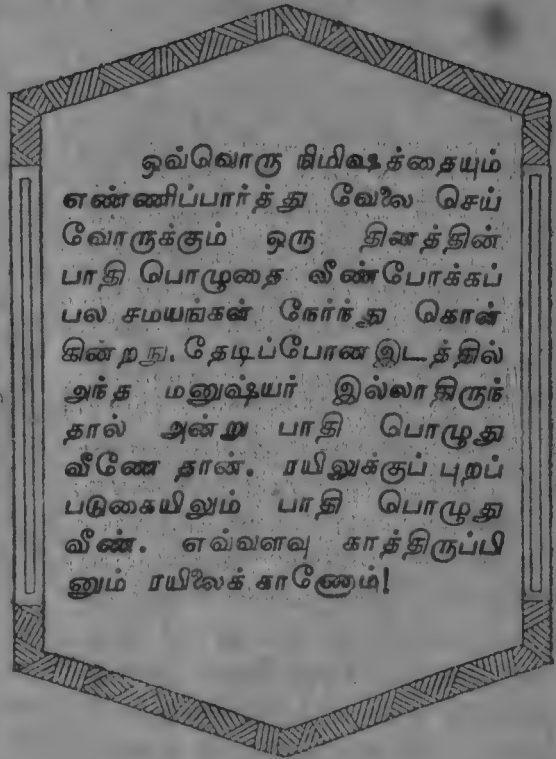 ஒவ்வொரு நிமிஷத்தையும்
எண்ணிப்பார்த்து வேலை செய்
வோருக்கும் ஒரு தினத்தின்
பாதி பொழுதை வீண்போக்கப்
பல சமயங்கள் நேர்ந்து கொள்
கின்றது. தேடிப்போன இடத்தில்
அந்த மனுஷ்யர் இல்லாதிருந்
தால் அன்று பாதி பொழுது
வீணே தான். ரயிலுக்குப் புறப்
படுகையிலும் பாதி பொழுது
வீண். எவ்வளவு காத்திருப்பி
னும் ரயிலைக் காணோம்!